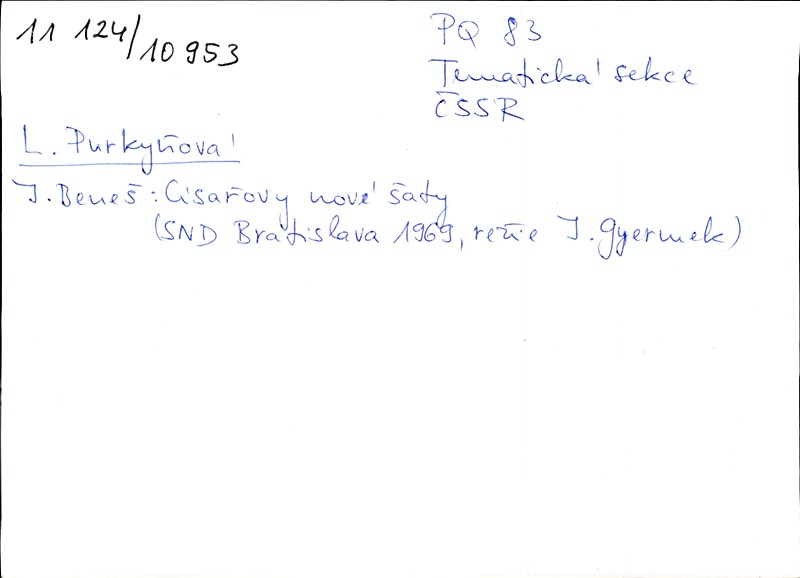 11 124/10 953
PQ 83
Tematická sekce
ČSSR
L. Purkyňová
J. Beneš: Císařovy nové šaty
(SND Bratislava 1969, režie J. Gyermek)